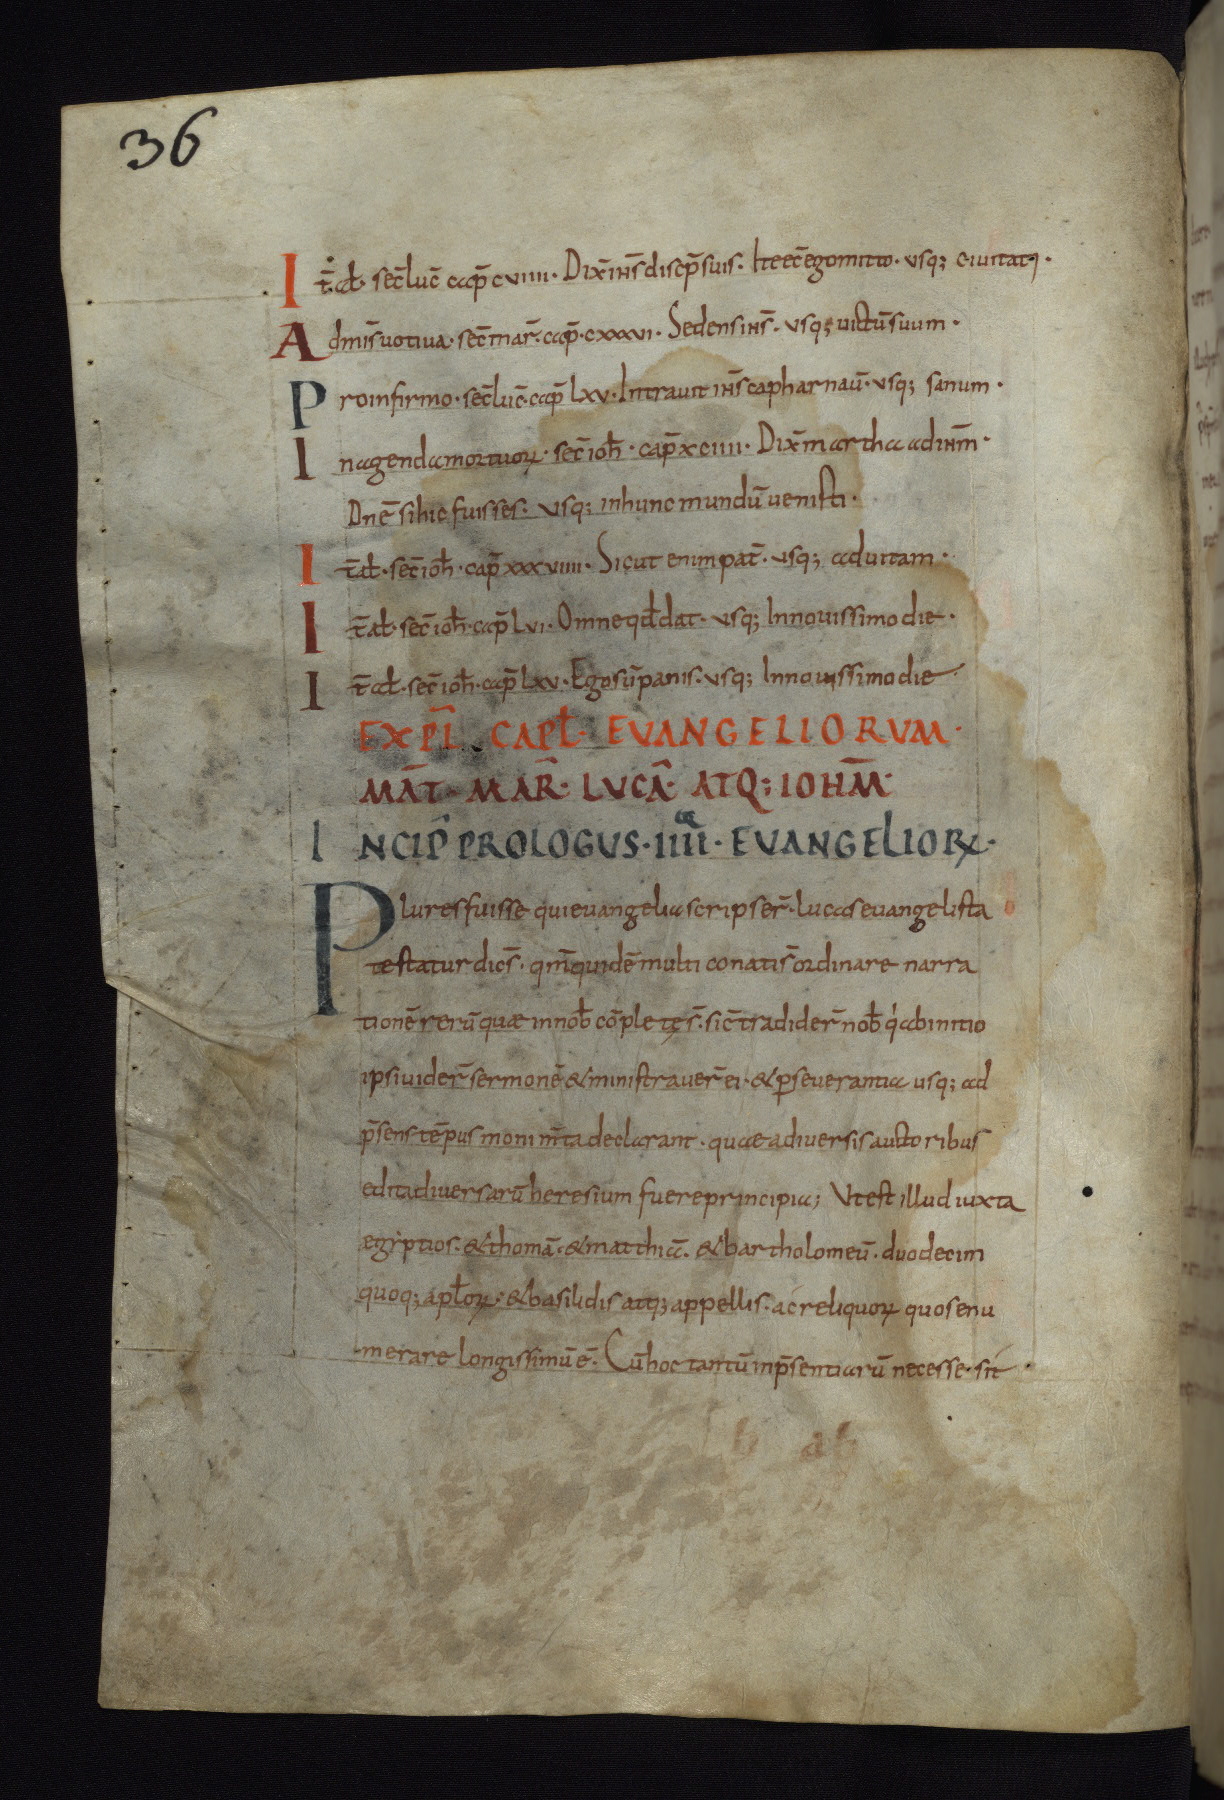 36
It̄ al̄. sec̄ luc̄ cap̄ cviiii. Dix̄ ihs̄ discp̄ suis. Ite ec̄ ego mitto. usq; civitatȩ.
Ad mis̄ votiva. sec̄ mar̄. cap̄. cxxxvi. Sedens ihs̄. usq; victū suum.
Pro infirmo. sec̄ luc̄. cap̄ lxv. Intravit ihs̄ capharnaū. usq; sanum.
In agenda mortuoꝝ. sec̄ ioh̄. cap̄ xciiii. Dix̄ martha ad ihm̄.
Dn̄e si hic fuisses. usq; in hunc mundū venisti.
It̄ al̄. sec̄ ioh̄. cap̄ xxxviiii. Sicut enim pat̄. usq; ad vitam.
It̄ al̄. sec̄ ioh̄. cap̄ lvi. Omne qd̄ dat. usq; In novissimo die.
It̄ al̄. sec̄ ioh̄. cap̄ lxv. Ego sū panis. usq; In novissimo die.
EXPL̄. CAPL̄. EVANGELIORVM.
MAT̄ MAR̄. LVCĀ. ATQ; IOHM̄.
INCIP̄ PROLOGUS. IIII. EVANGELIOꝝ.
Plures fuisse qui evangelia scripser̄. lucas evangelista
testatur dicS̄. qm̄ quidē multi conati s̄ ordinare narra
tionē rerū quæ in nob̄ cōpletȩ s̄. sic̄ tradider̄ nob̄ qi ab initio
ipsi vider̄ sermonē & ministraver̄ ei. & pseverantia usq; ad
p̄sens tēpus monim̄ta declarant. quae a diversis auctoribus
edita diversarū heresium fuere principia; Ut est illud iuxta
ægiptios. & thomā. & matthiā. & bartholomeū. duodecim
quoq; apl̄oꝝ. & basilidis atq; appellis. ac reliquoꝝ quos enu
merare longissimū ē. Cū hoc tantū in p̄sentiarū necesse sit